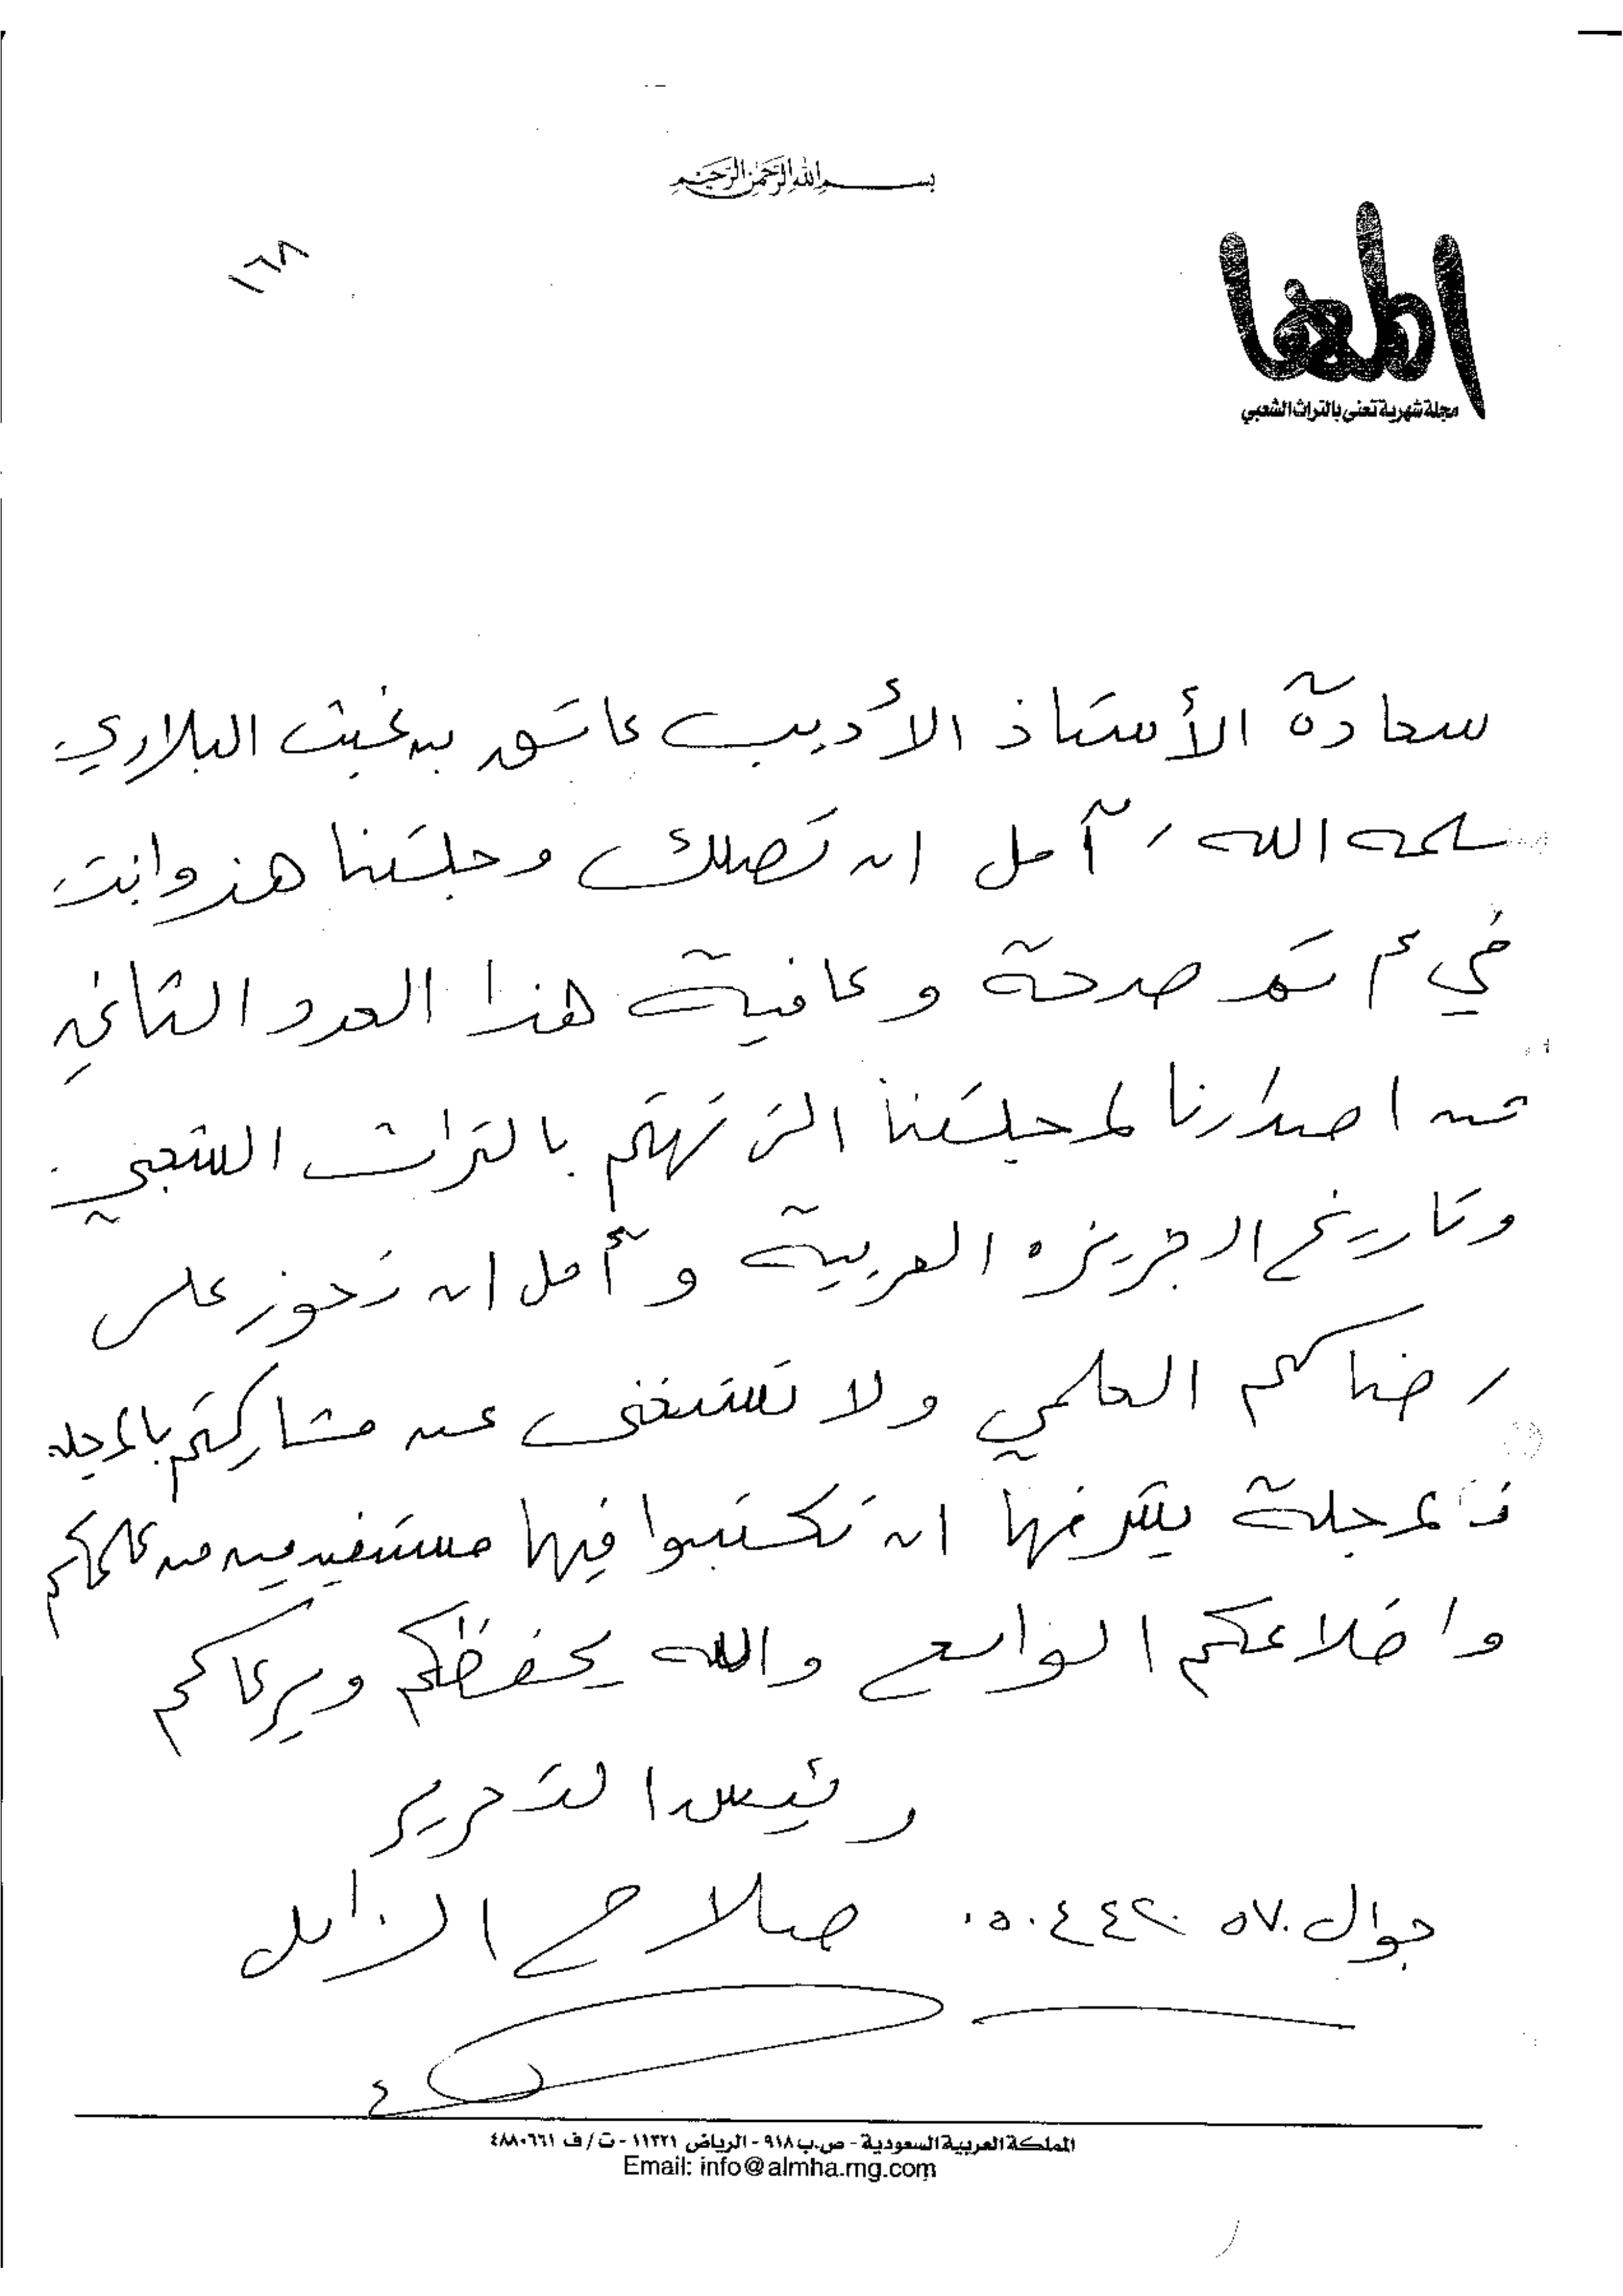 بسم الله الرحمن الرحيم
١٦٨
المها
مجلة شهرية تعنى بالتراث الشعبي
سعادة الأستاذ الأديب عاتق بن غيث البلادي
سلمه الله / آمل ان تصلك مجلتنا هذ وانت
في أتم صحة وعافية هذا العدد الثاني
من اصدارنا لمجلتنا التي تهتم بالتراث الشعبي
وتاريخ الجزيره العربية وآمل ان تحوز على
رضاكم العلمي ولا نستغنى عن مشاركتكم بالمجله
فالمجلة يشرفها ان تكتبوا فيها مستفيدين من علمكم
واطلاعكم الواسع والله يحفظكم ويرعاكم
رئيس التحرير
جوال ٠٥٠٤٤٢٠٥٧٠ صلاح الزامل
المملكة العربية السعودية - ص.ب ٩١٨ - الرياض ١١٣٢١ - ت / ف ٤٨٨٠٦٦١
Email: info@almha.mg.com